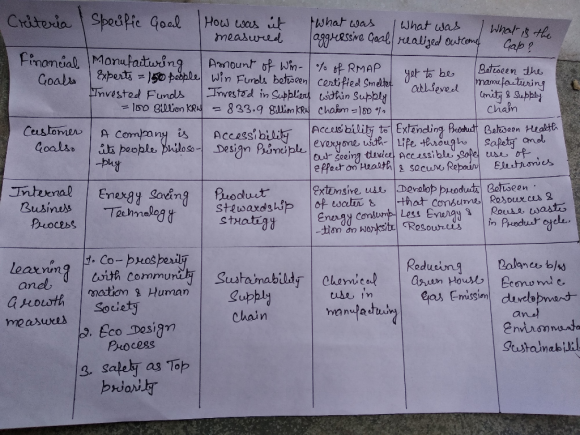 Criteria
Specific Goal
How was it
measured
What was
aggressive Goal
What was
realized outcome
What is the
Gap?
Financial
Goals
Manufacturing
Experts = 150 people
Invested Funds
= 100 Billion KRW
Amount of Win-
Win Funds between
Invested in Suppliers
= 833.9 Billion KRW
% of RMAP
Certified Smelter
within Supply
chain = 100 %
yet to be
achieved
Between the
manufacturing
Unity & Supply
Chain
Customer
Goals
A company is
its people philoso-
-phy
Accessibility
Design Principle
Accessibility to
everyone with-
out seeing device
effect on Health
Extending Product
life through
Accessible, Safe
& secure Repair
Between Health
Safety and
use of
Electronics
Internal
Business
Process
Energy Saving
Technology
Product
Stewardship
Strategy
Extensive use
of water &
Energy Consump
-tion on worksite
Develop products
that consume
Less Energy &
Resources
Between
Resources &
Reuse waste
in Product cycle.
Learning
and
Growth
measures
1. Co-prosperity
with community
nation & Human
Society
2. Eco Design
Process
3. Safety as Top
priority
Sustainability
Supply
Chain
Chemical
use in
manufacturing
Reducing
Green House
Gas Emission
Balance b/w
Economic
development
and
Environmental
Sustainability